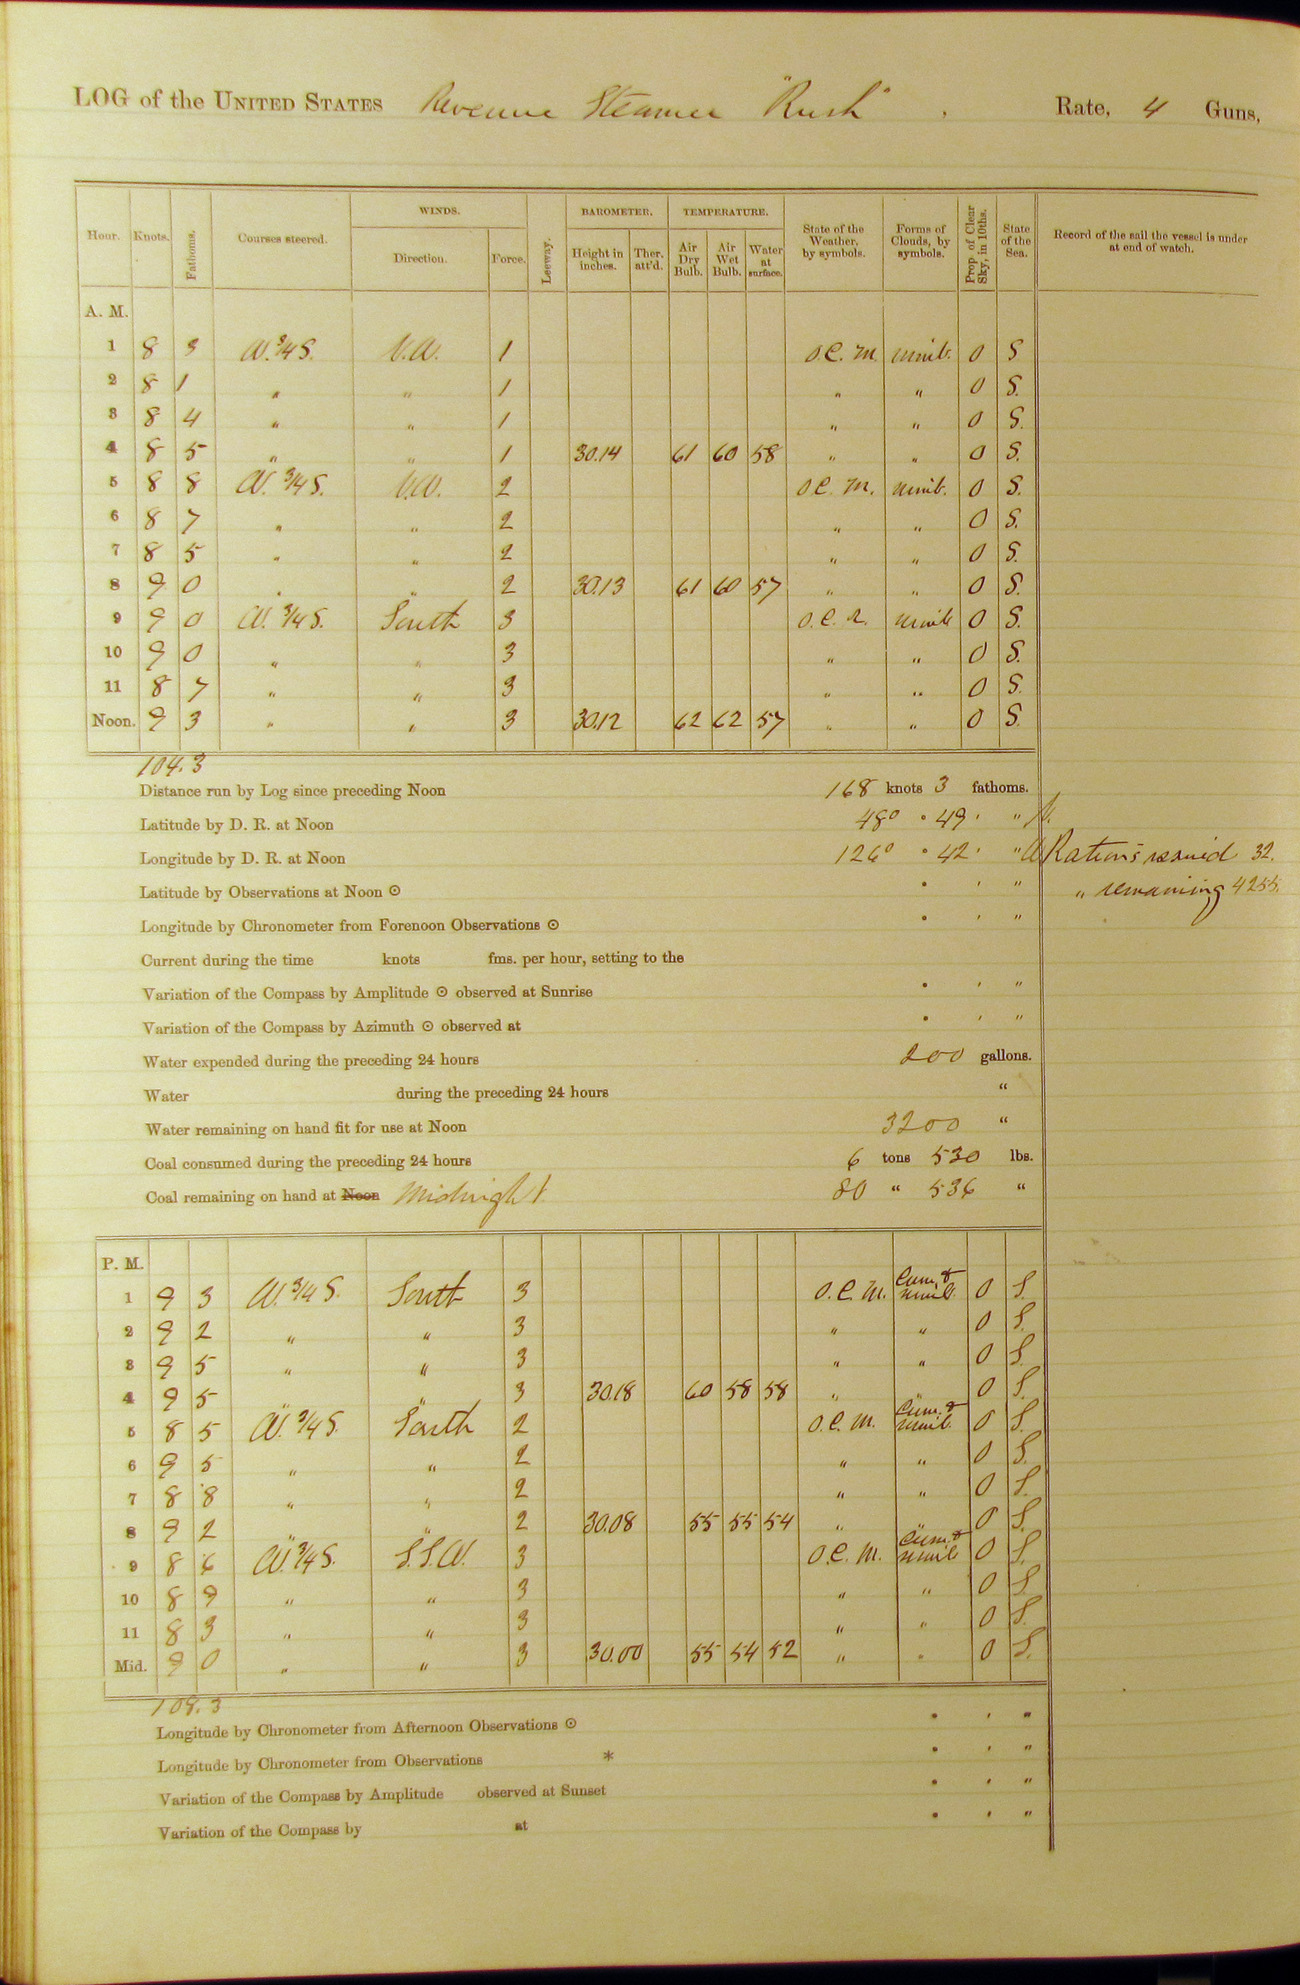 LOG of the UNITED STATES Revenue Steamer "Rush", Rate, 4 Guns,
Hour. Knots. Fathoms. Courses steered. WINDS. Direction. Force. Leeway. BAROMETER. Height in inches. Ther. att'd. TEMPERATURE. Air Dry Bulb. Air Wet Bulb. Water at surface. State of the Weather, by symbols. Forms of Clouds, by symbols. Prop. of Clear Sky, in 10ths. State of the Sea. Record of the sail the vessel is under at end of watch.
A. M.
1 8 3 W. 3/4 S. 1 O.C.M. nimb. 0 S
2 8 1 " " 1 " " 0 S.
3 8 4 " " 1 " " 0 S.
4 8 5 " " 1 30.14 61 60 58 " " 0 S.
5 8 8 W. 3/4 S. 2 O.C.M. nimb. 0 S.
6 8 7 " " 2 " " 0 S.
7 8 5 " " 2 " " 0 S.
8 9 0 " " 2 30.13 61 60 57 " " 0 S.
9 9 0 W. 3/4 S. South 3 O.C.R. nimb 0 S.
10 9 0 " " 3 " " 0 S.
11 8 7 " " 3 " " 0 S.
Noon. 9 3 " " 3 30.12 62 62 57 " " 0 S.
104.3
Distance run by Log since preceding Noon 168 knots 3 fathoms.
Latitude by D. R. at Noon 48° ° 49 ' " N.
Longitude by D. R. at Noon 126° ° 42 ' " W Rations issued 32.
Latitude by Observations at Noon ⊙ ° ' " " remaining 4255.
Longitude by Chronometer from Forenoon Observations ⊙ ° ' "
Current during the time knots fms. per hour, setting to the
Variation of the Compass by Amplitude ⊙ observed at Sunrise ° ' "
Variation of the Compass by Azimuth ⊙ observed at ° ' "
Water expended during the preceding 24 hours 200 gallons.
Water during the preceding 24 hours "
Water remaining on hand fit for use at Noon 3200 "
Coal consumed during the preceding 24 hours 6 tons 530 lbs.
Coal remaining on hand at Noon Midnight 80 " 536 "
P. M.
1 9 3 W. 3/4 S. South 3 O.C.M. Cum. & nimb. 0 S.
2 9 2 " " 3 " " 0 S.
3 9 5 " " 3 " " 0 S.
4 9 5 " " 3 30.18 60 58 58 " " 0 S.
5 8 5 W. 3/4 S. South 2 O.C.M. Cum. & nimb. 0 S.
6 9 5 " " 2 " " 0 S.
7 8 8 " " 2 " " 0 S.
8 9 2 " " 2 30.08 55 55 54 " " 0 S.
9 8 6 W. 3/4 S. S.S.W. 3 O.C.M. Cum. & nimb 0 S.
10 8 9 " " 3 " " 0 S.
11 8 3 " " 3 " " 0 S.
Mid. 9 0 " " 3 30.00 55 54 52 " " 0 S.
108.3
Longitude by Chronometer from Afternoon Observations ⊙ ° ' "
Longitude by Chronometer from Observations * ° ' "
Variation of the Compass by Amplitude observed at Sunset ° ' "
Variation of the Compass by at ° ' "